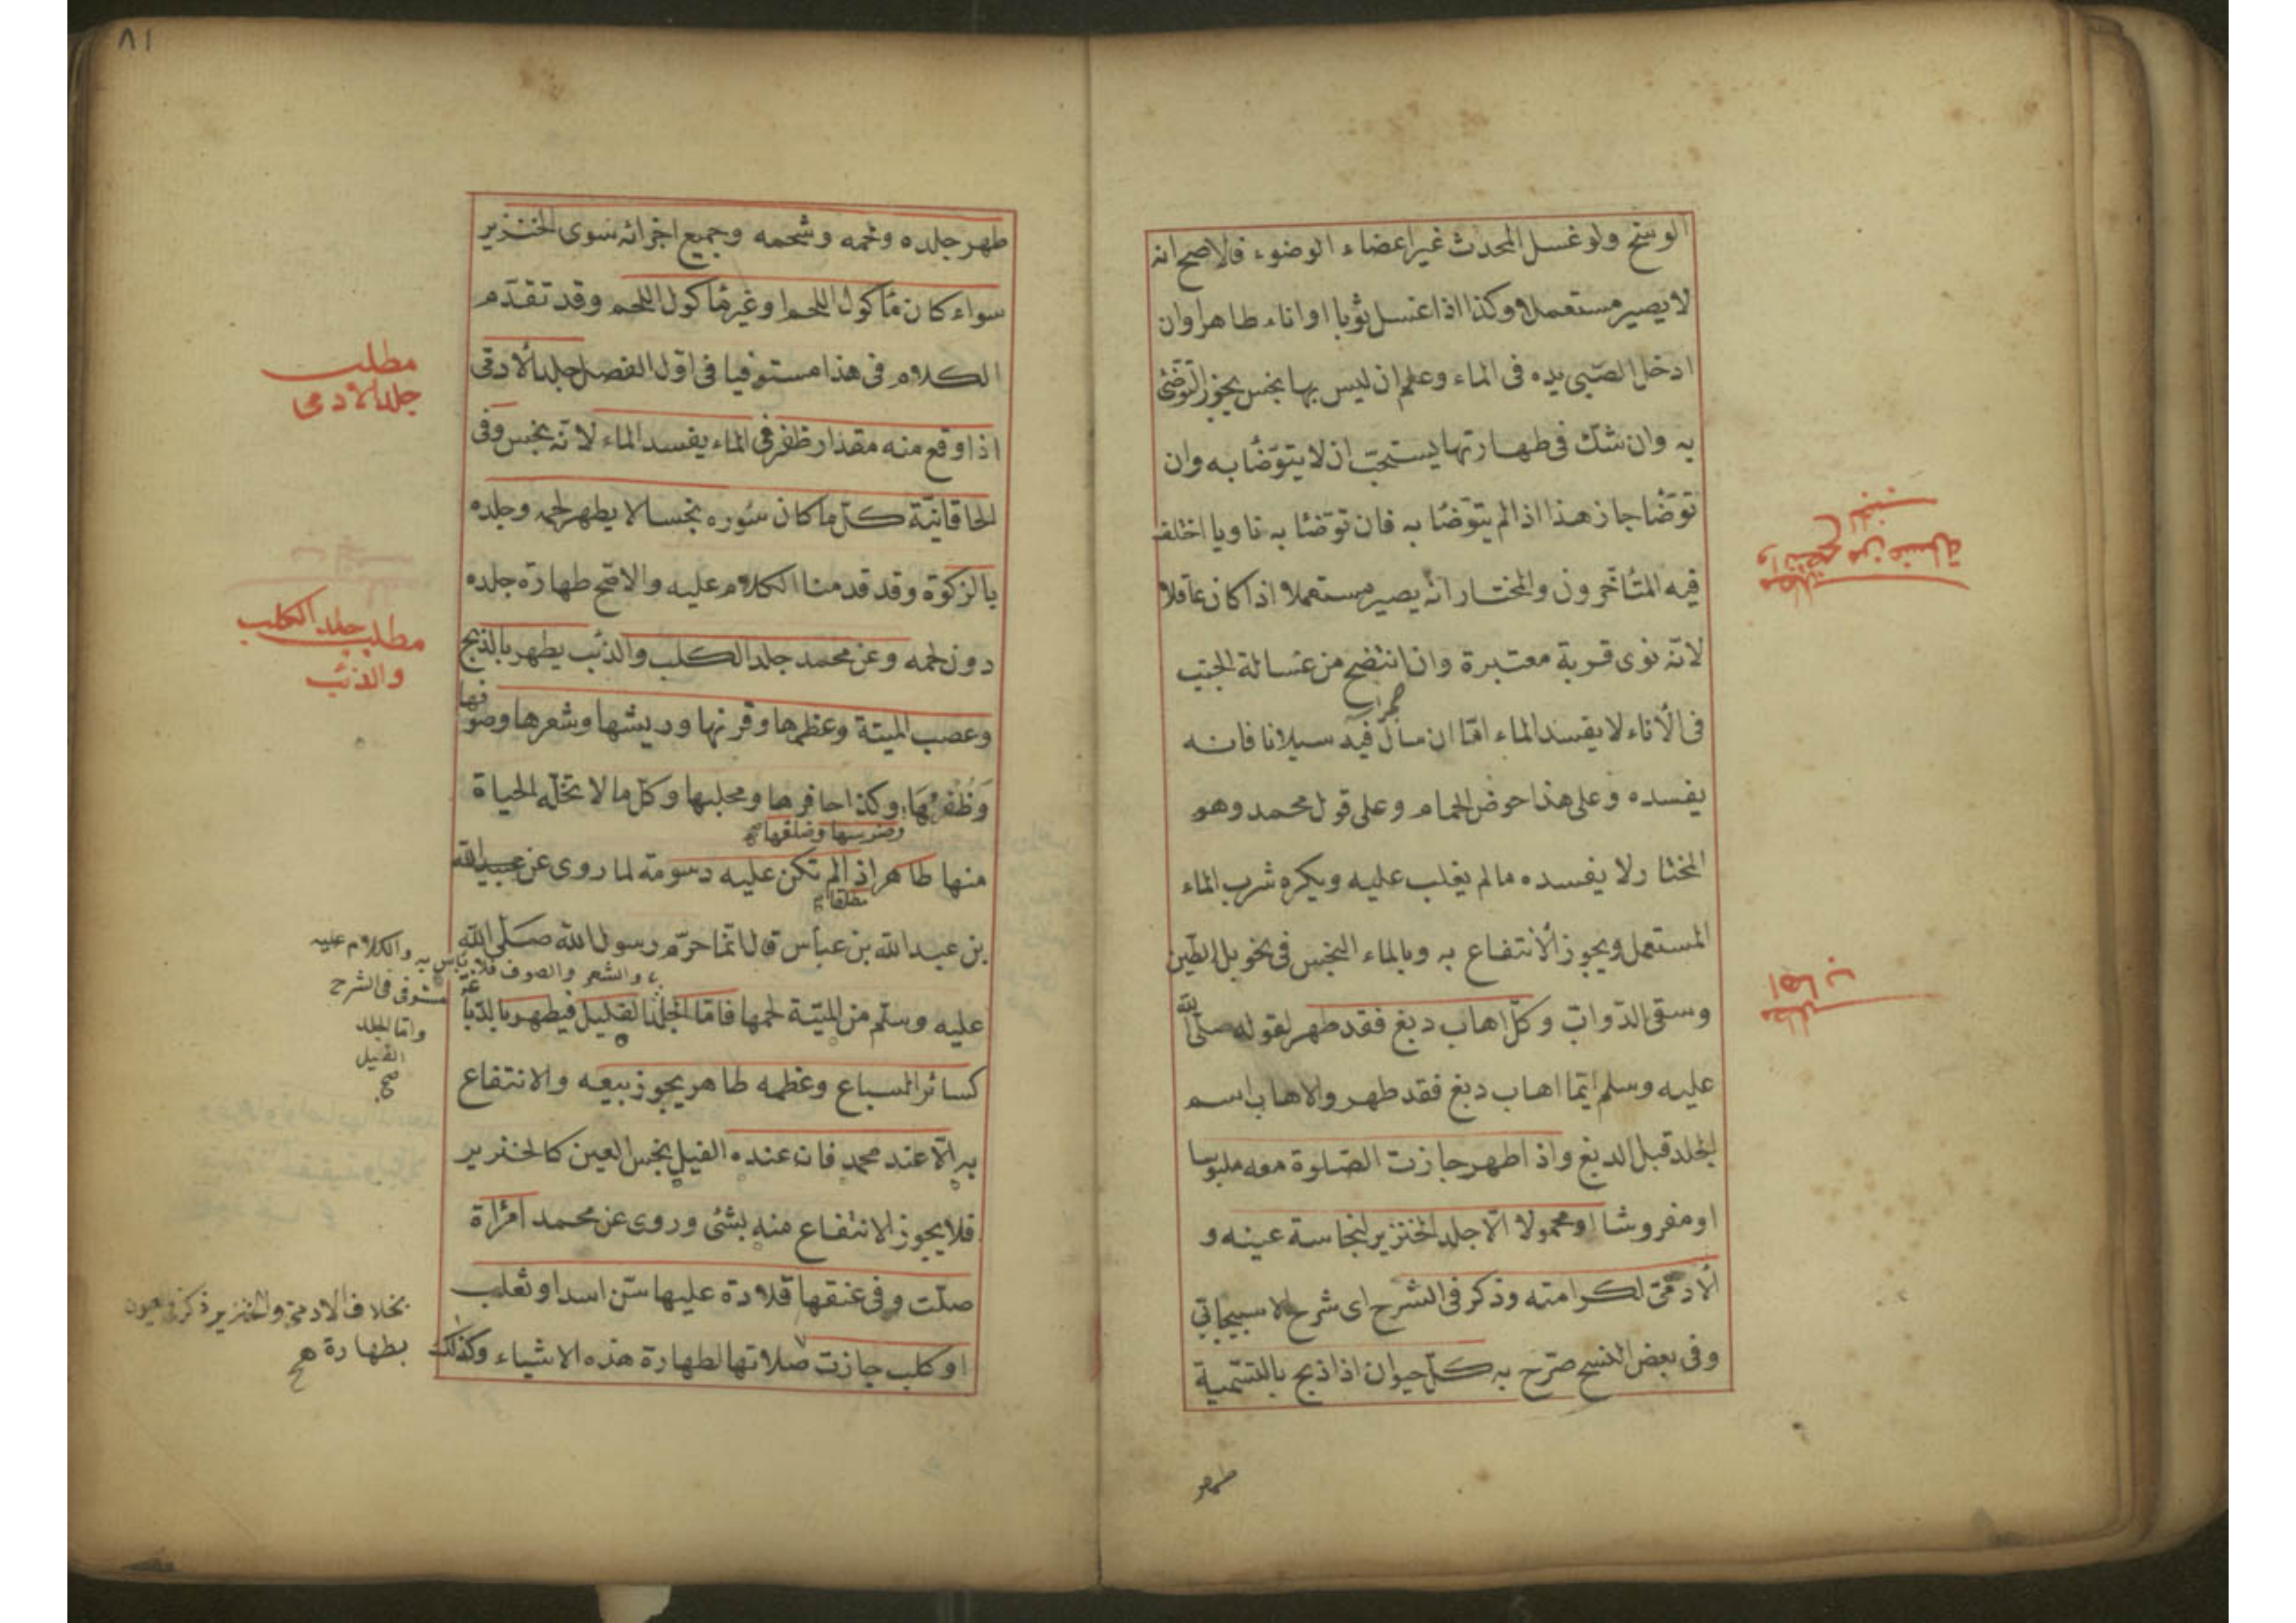 الوسخ ولو غسل المحدث غير اعضاء الوضوء فالاصح انه
لا يصير مستعملا وكذا اذا غسل ثوبا او اناء طاهرا وان
ادخل الصّبي يده فى الماء وعلم ان ليس بها نجس يجوز التوضئ
به وان شكّ فى طهارتها يستحبّ ان لا يتوضّأ به وان
توضّأ جاز هذا اذا لم يتوضّا به فان توضّئا به ناويا اختلف
فيه المتأخرون والمختار انّه يصير مستعملا اذا كان عاقلا
لانّه نوى قربة معتبرة وان انتضح من غسالة الجنب
فى الأناء لا يفسد الماء امّا ان سال فيه سيلانا فانه
يفسده وعلى هذا حوض الحمام وعلى قول محمد وهو
المختار لا يفسده مالم يغلب عليه ويكره شرب الماء
المستعمل ويجوز الأنتفاع به وبالماء النجس فى نخويل الطّين
وسقى الدّوابّ وكلّ اهاب دبغ فقد طهر لقوله صلّى الله
عليه وسلم ايّما اهاب دبغ فقد طهر والاهاب اسم
الجلد قبل الدبغ واذا طهر جازت الصّلوة معه ملبوسا
او مفروشا او محمولا الّا جلد الخنزير لنجاسة عينه و
الأدمّى لكرامته وذكر فى الشرح اى شرح الاسبيجابّي
وفى بعض النسخ صرّح به كلّ حيوان اذا ذبح بالتسمية
طهر
مطلب
وانتضح من غسالة
الجنب
مطلب
اهاب
٨١
طهر جلده ولحمه وشحمه وجميع اجزائه سوى الخنزير
سواء كان مأكول اللحم او غير مأكول اللحم وقد تقدّم
الكلام فى هذا مستوفيا فى اوّل الفصل جلد الأدمّى
اذا وقع منه مقدار ظفر فى الماء يفسد الماء لانّه نجس وفى
الخاقانيّة كلّ ما كان سُوره نجسا لا يطهر لحمه وجلده
بالزكوة وقد قدمنا الكلام عليه والاصّح طهارة جلده
دون لحمه وعن محمد جلد الكلب والذئب يطهر بالذبح
وعصب الميتة وعظمها وقرنها وريشها وشعرها وصوفها
وَظُفْرُهَا وكذا حافرها ومخلبها وكلّ ما لا تحلّه الحياة
وضرسها وضلفها صح
منها طاهر اذا لم تكن عليه دسومة لما روى عن عبيد الله
بن عبد الله بن عباس قال انّما حرّم رسول الله صلّى الله
عليه وسلّم من الميتة لحمها فامّا الجلد القليل فيطهر بالدّباغ
كسائر السباع وعظمه طاهر يجوز بيعه والانتفاع
به الّا عند محمد فان عنده الفيل نجس العين كالخنزير
فلا يجوز الانتفاع منه بشئ وروى عن محمد امرأة
صلّت وفى عنقها قلادة عليها سّن اسد او ثعلب
او كلب جازت صلاتها لطهارة هذه الاشياء وكذلك
مطلب
جلد الادمى
مطلب جلد الكلب
والذئب
والشعر والصوف فلا بأس به والكلام عليه
مستوفى فى الشرح
وامّا الجلد
الفيل
صح
بخلاف الادمّى والخنزير ذكر فى العيون
بطهارة صح